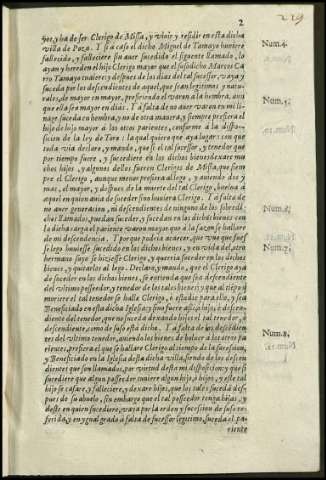 2
219
yor, y ha de ser Clerigo de Missa, y viuir y residir en esta dicha
villa de Poza. Y si a caso el dicho Miguel de Tamayo huuiere
fallecido, y falleciere sin auer sucedido el siguiente llamado, lo
ayan y hereden el hijo Clerigo mayor que el susodicho Marcos Ca
rro Tamayo tuuiere: y despues de los dias del tal sucessor, vaya y
suceda por los descendientes de aquel, que sean legitimos y natu-
rales, de mayor en mayor, prefiriendo el varon a la hembra, aun
que ella sea mayor en dias. Y a falta de no auer varon en mi li-
nage suceda en hembra, y no de otra manera, y siempre prefiera el
hijo de hijo mayor à los otros parientes, conforme à la dispo-
sicion de la ley de Toro: la qual quiero que aya lugar: con que
toda via declaro, y mando, que si el tal sucessor, y tenedor que
por tiempo fuere, y sucediere en los dichos bienes dexare mu
chos hijos, y algunos dellos fueren Clerigos de Missa, que siem
pre el Clerigo, aunque menor prefiera a llego, y auiendo dos y
mas, el mayor, y despues de la muerte del tal Clerigo, buelua à
aquel en quien auia de suceder sino huuiera Clerigo. Y a falta de
no auer generacion, ni descendientes de ninguno de los sobredi-
chos llamados, puedan suceder, y sucedan en los dichos bienes con
la dicha carga el pariente varon mayor que à la sazon se hallare
de mi descendencia. Y por que podria acaecer, que vno que fues-
se lego huuiesse sucedido en los dichos bienes, y en vida del, otro
hermano suyo se hiziesse Clerigo, y querria suceder en los dichos
bienes, y quitarlos al lego. Declaro, y mando, que el Clerigo aya
de suceder en los dichos bienes, se entienda que sea descendiente
del vltimo posseedor, y tenedor de los tales bienes: y que al tiẽpo q̃
muriere el tal tenedor se halle Clerigo, ò estudie para ello, y sea
Beneficiado en esta dicha Iglesia: y sino fuere assi q̃ hijo, ò descen-
diente del tenedor, que no suceda dexando hijos el tal tenedor, ò
descendiente, como de suso està dicho. Y a falta de los descẽdien-
tes del vltimo tenedor, auiendo los bienes de boluer à los otros pa
rientes, prefiera el que se hallare Clerigo al tiempo de la sucession,
y Beneficiado en la Iglesia desta dicha villa, siendo de los descen-
dientes que son llamados, por virtud desta mi disposicion: y que si
sucediere que algun posseedor tuuiere algun hijo, ò hijos, y este tal
hijo se casare, y falleciere, y dexare hijos, que los tales suceda des-
pues de su abuelo, sin embargo que el tal posseedor tenga hijos, y
deste en quien sucediere, vaya por la orden y sucession de suso re-
ferida, y en ygual grado à falta de sucessor legitimo, suceda el pa-
riente
Num.4.
Num.5.
Num.6.
Num.7.
Num.8.